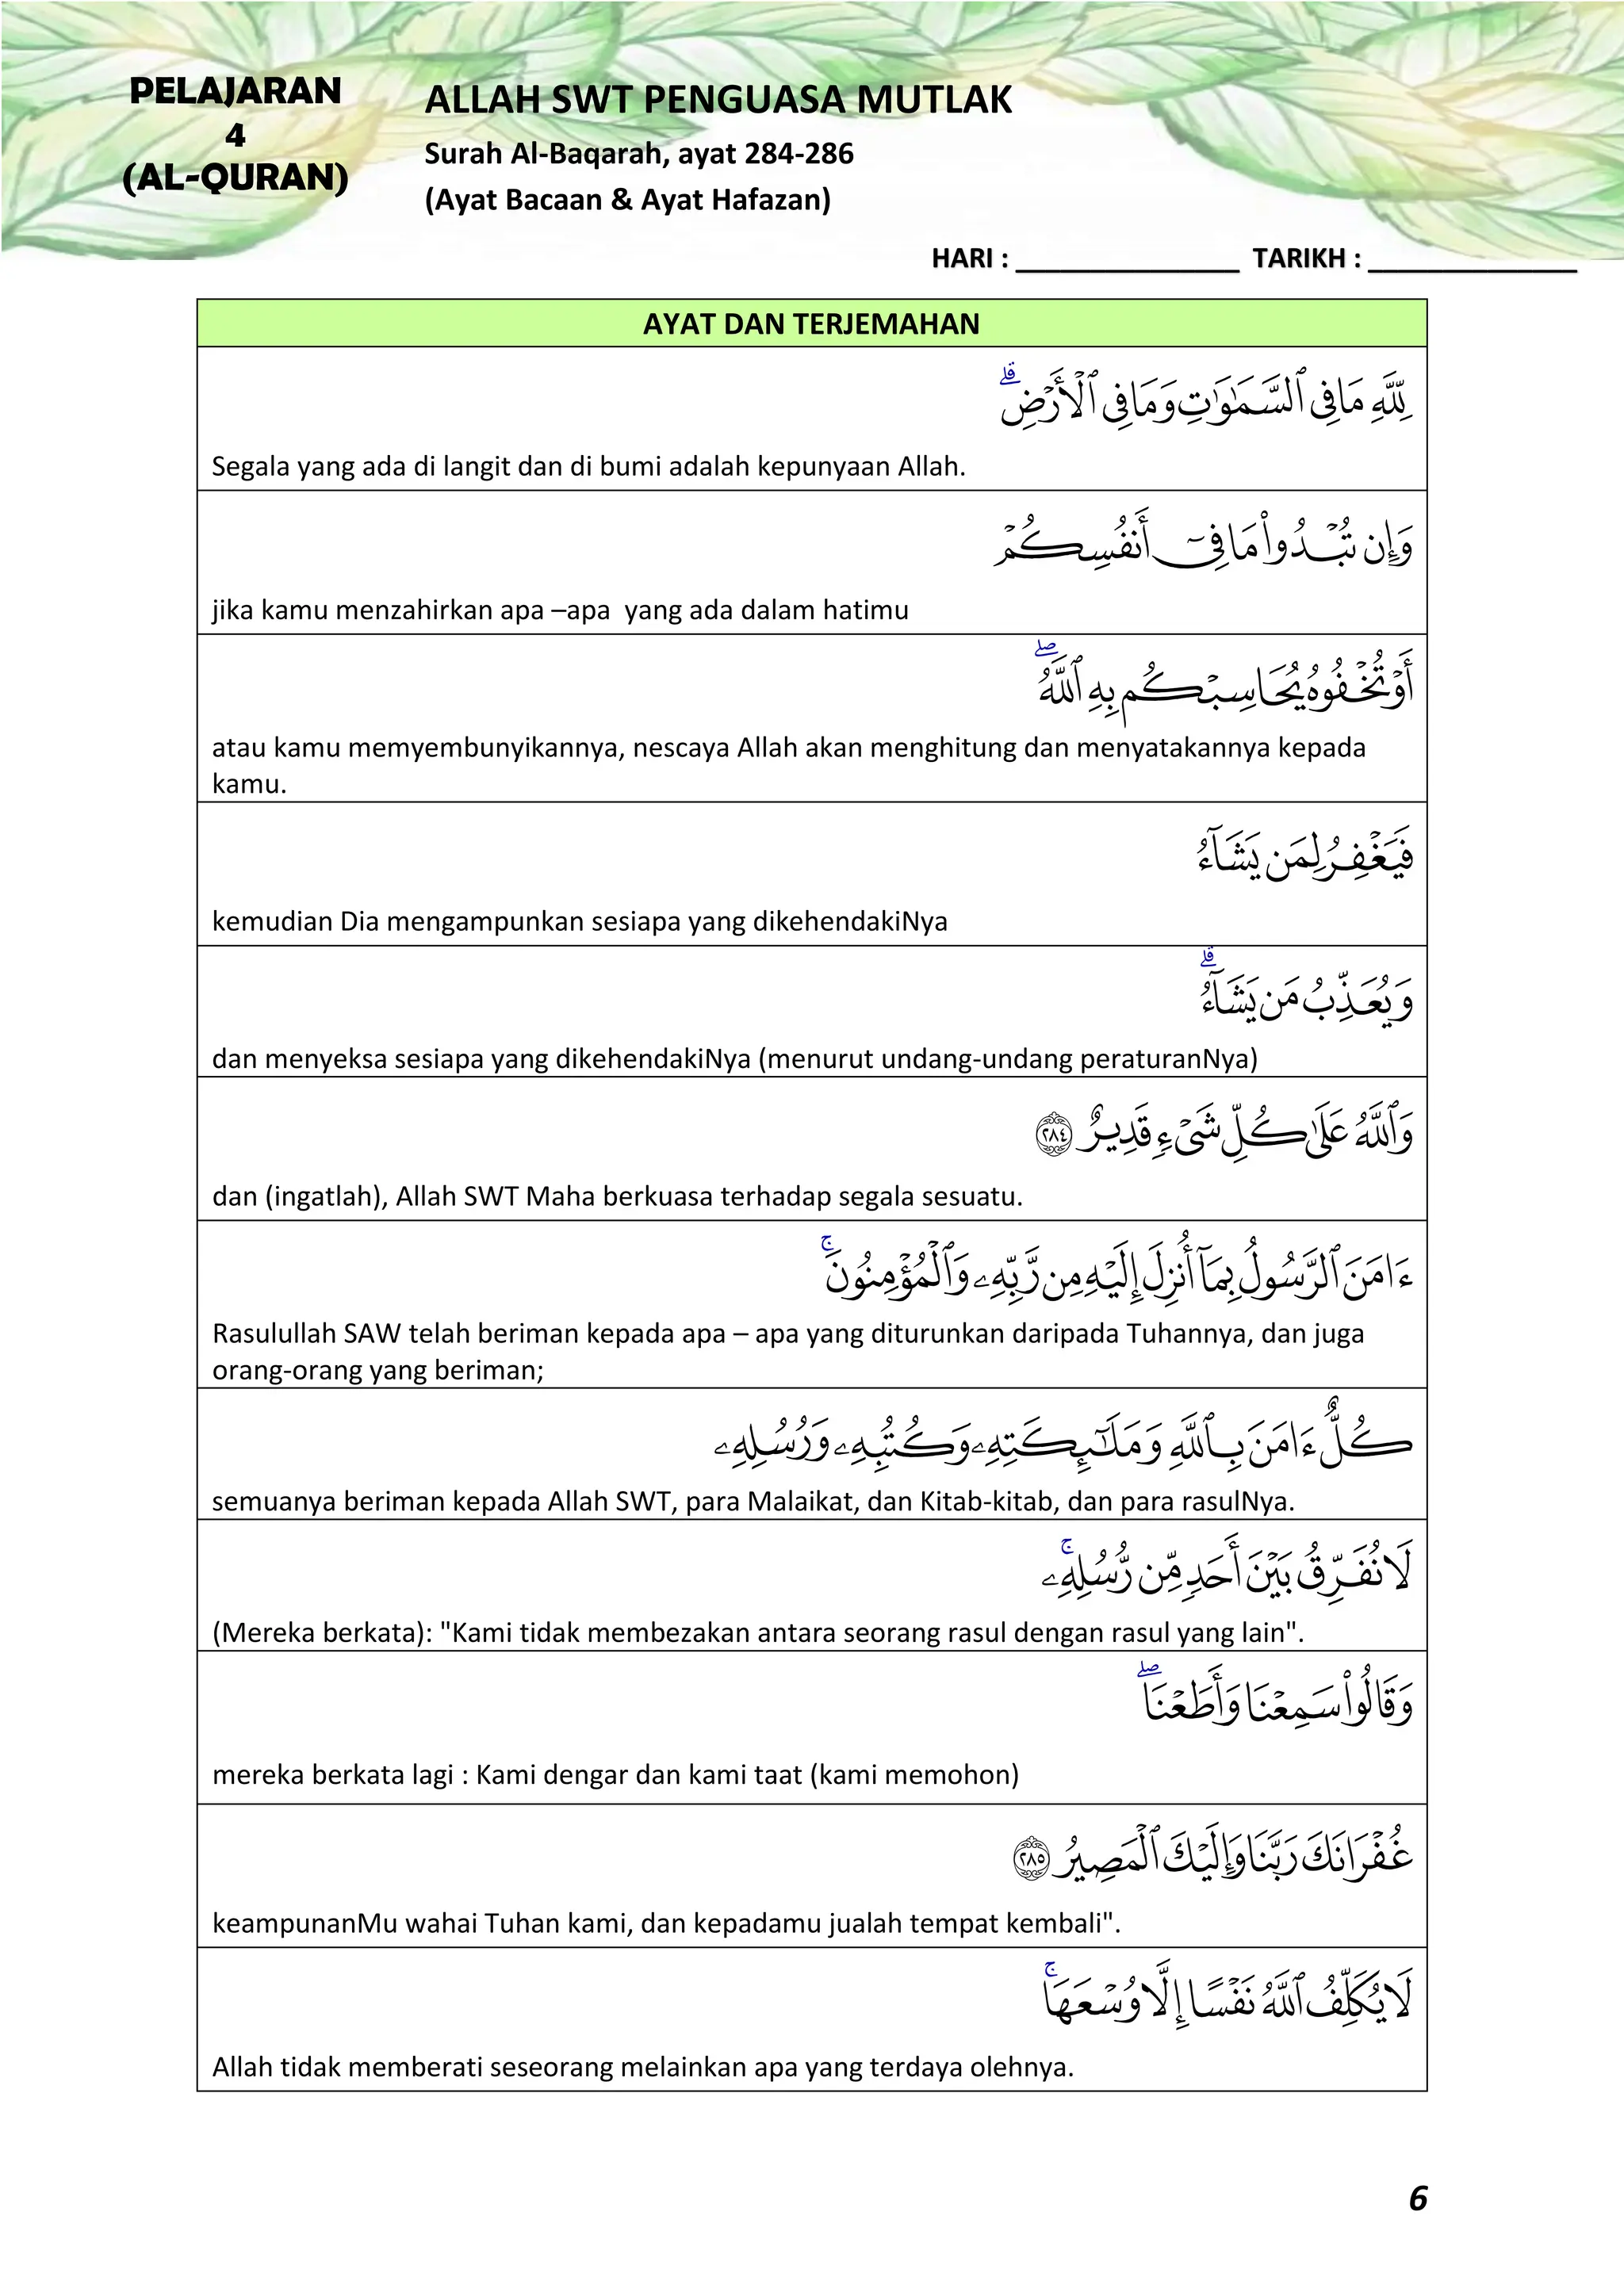 PELAJARAN
4
(AL-QURAN)
ALLAH SWT PENGUASA MUTLAK
Surah Al-Baqarah, ayat 284-286
(Ayat Bacaan & Ayat Hafazan)
HARI : _______________ TARIKH : ______________
AYAT DAN TERJEMAHAN
لِلَّهِ مَا فِى ٱلسَّمَٰوَٰتِ وَمَا فِى ٱلْأَرْضِ ۗ
Segala yang ada di langit dan di bumi adalah kepunyaan Allah.
وَإِن تُبْدُوا۟ مَا فِىٓ أَنفُسِكُمْ
jika kamu menzahirkan apa –apa  yang ada dalam hatimu
أَوْ تُخْفُوهُ يُحَاسِبْكُم بِهِ ٱللَّهُ ۖ
atau kamu memyembunyikannya, nescaya Allah akan menghitung dan menyatakannya kepada
kamu.
فَيَغْفِرُ لِمَن يَشَآءُ
kemudian Dia mengampunkan sesiapa yang dikehendakiNya
وَيُعَذِّبُ مَن يَشَآءُ ۗ
dan menyeksa sesiapa yang dikehendakiNya (menurut undang-undang peraturanNya)
وَٱللَّهُ عَلَىٰ كُلِّ شَىْءٍ قَدِيرٌ ٢٨٤
dan (ingatlah), Allah SWT Maha berkuasa terhadap segala sesuatu.
ءَامَنَ ٱلرَّسُولُ بِمَآ أُنزِلَ إِلَيْهِ مِن رَّبِّهِۦ وَٱلْمُؤْمِنُونَ ۚ
Rasulullah SAW telah beriman kepada apa – apa yang diturunkan daripada Tuhannya, dan juga
orang-orang yang beriman;
كُلٌّ ءَامَنَ بِٱللَّهِ وَمَلَٰٓئِكَتِهِۦ وَكُتُبِهِۦ وَرُسُلِهِۦ
semuanya beriman kepada Allah SWT, para Malaikat, dan Kitab-kitab, dan para rasulNya.
لَا نُفَرِّقُ بَيْنَ أَحَدٍ مِّن رُّسُلِهِۦ ۚ
(Mereka berkata): "Kami tidak membezakan antara seorang rasul dengan rasul yang lain".
وَقَالُوا۟ سَمِعْنَا وَأَطَعْنَا ۖ
mereka berkata lagi : Kami dengar dan kami taat (kami memohon)
غُفْرَانَكَ رَبَّنَا وَإِلَيْكَ ٱلْمَصِيرُ ٢٨٥
keampunanMu wahai Tuhan kami, dan kepadamu jualah tempat kembali".
لَا يُكَلِّفُ ٱللَّهُ نَفْسًا إِلَّا وُسْعَهَا ۚ
Allah tidak memberati seseorang melainkan apa yang terdaya olehnya.
6